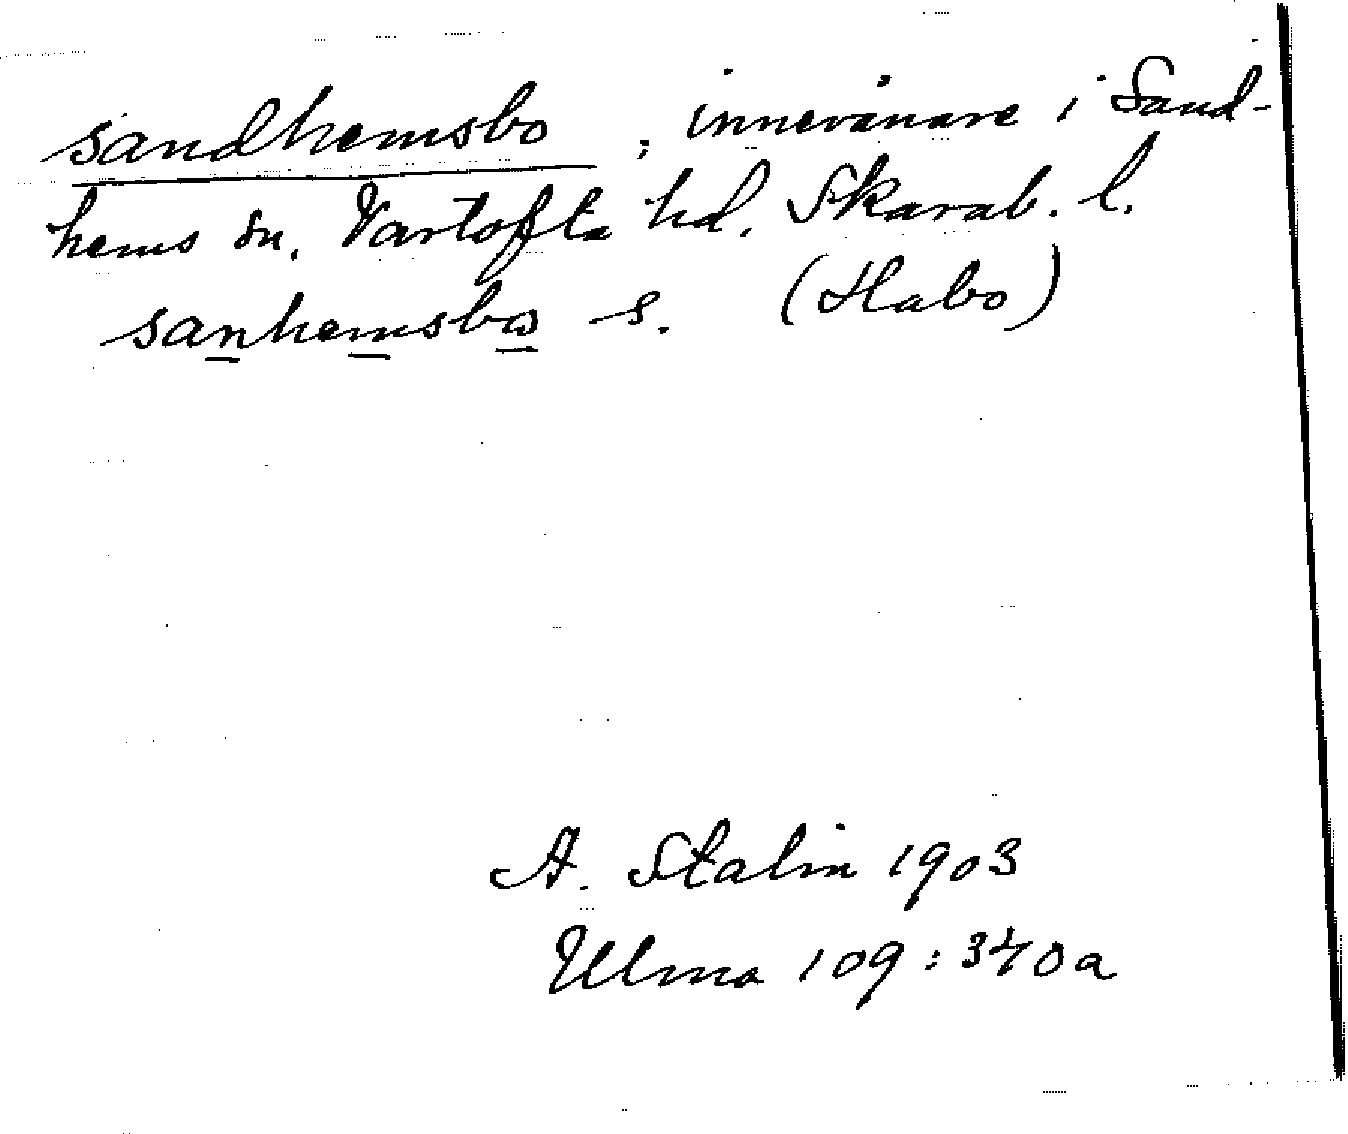 sandhemsbo, innevånare i Sand-
hems sn. Vartofta hd, Skarab. l.
sanhemsbo s. (Habo)
A. Stalin 1903
Ulma 109:340a